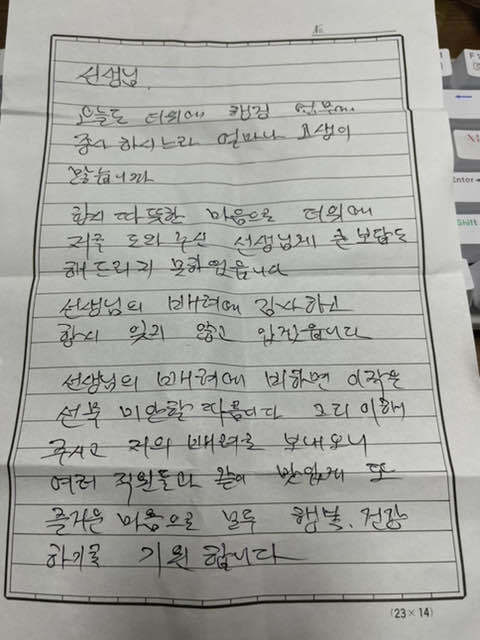 No
선생님.
오늘도 더위에 현장 업무에
종사 하시느라 얼마나 고생이
많습니까
항시 따뜻한 마음으로 더위에
저를 도와주신 선생님께 큰 보답도
해드리지 못하였읍니다
선생님의 배려에 감사하고
항시 잊지 않고 있겠읍니다
선생님의 배려에 비하면 이 작은
선물 미안할 따름이다 그리 이해
주시고 저의 배려를 보내오니
여러 직원들과 같이 맛있게 또
즐거운 마음으로 모두 행복, 건강
하기를 기원 합니다
(23×14)
Enter
Shift